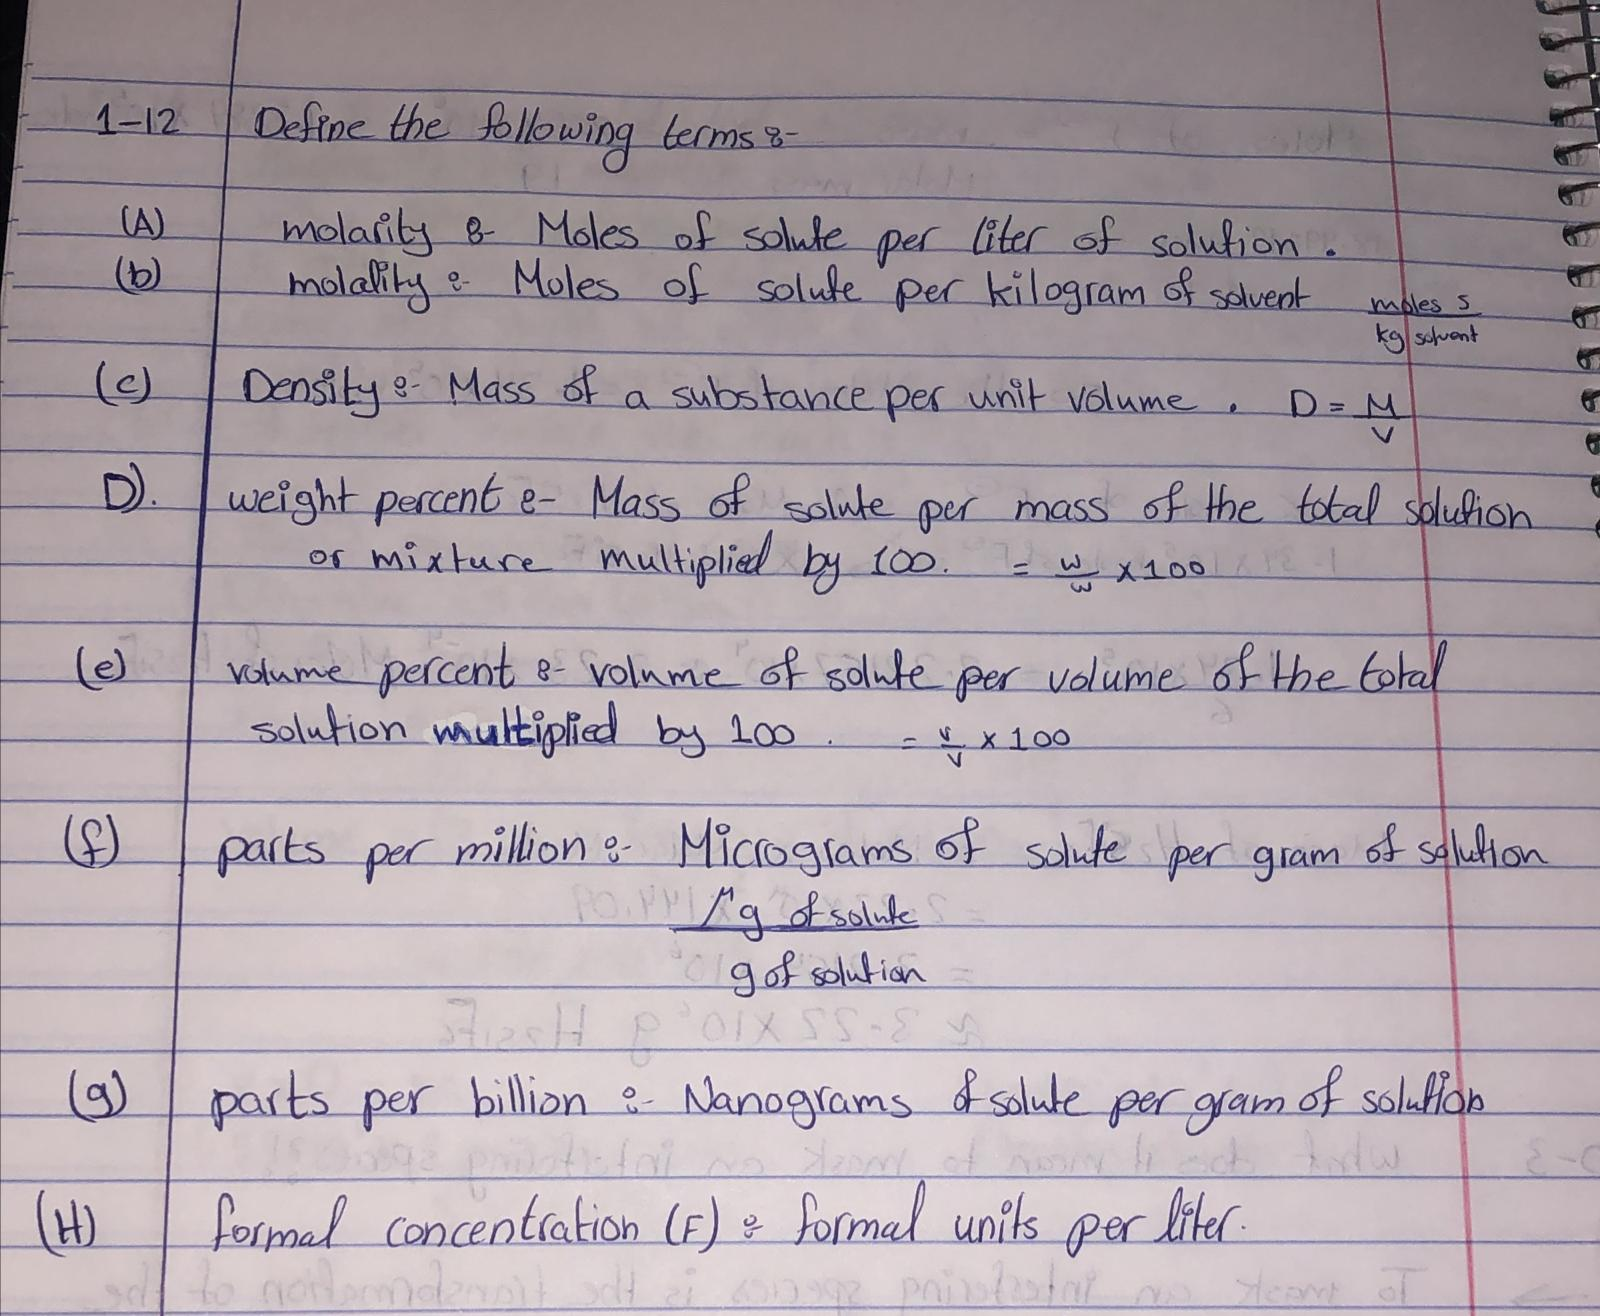 1-12 Define the following terms :-
(A) molarity :- Moles of solute per liter of solution.
(b) molality :- Moles of solute per kilogram of solvent moles s / kg solvent
(c) Density :- Mass of a substance per unit volume. D = M/V
D). weight percent :- Mass of solute per mass of the total solution
or mixture multiplied by 100. = w/w x 100
(e) volume percent :- volume of solute per volume of the total
solution multiplied by 100. = v/v x 100
(f) parts per million :- Micrograms of solute per gram of solution
μg of solute
g of solution
(g) parts per billion :- Nanograms of solute per gram of solution
(H) formal concentration (F) : formal units per liter.